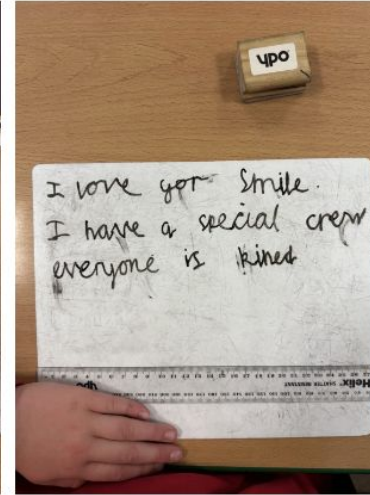 ypo
I love yor smile.
I have a special crew
everyone is kined
ypo
Helix SHATTER RESISTANT